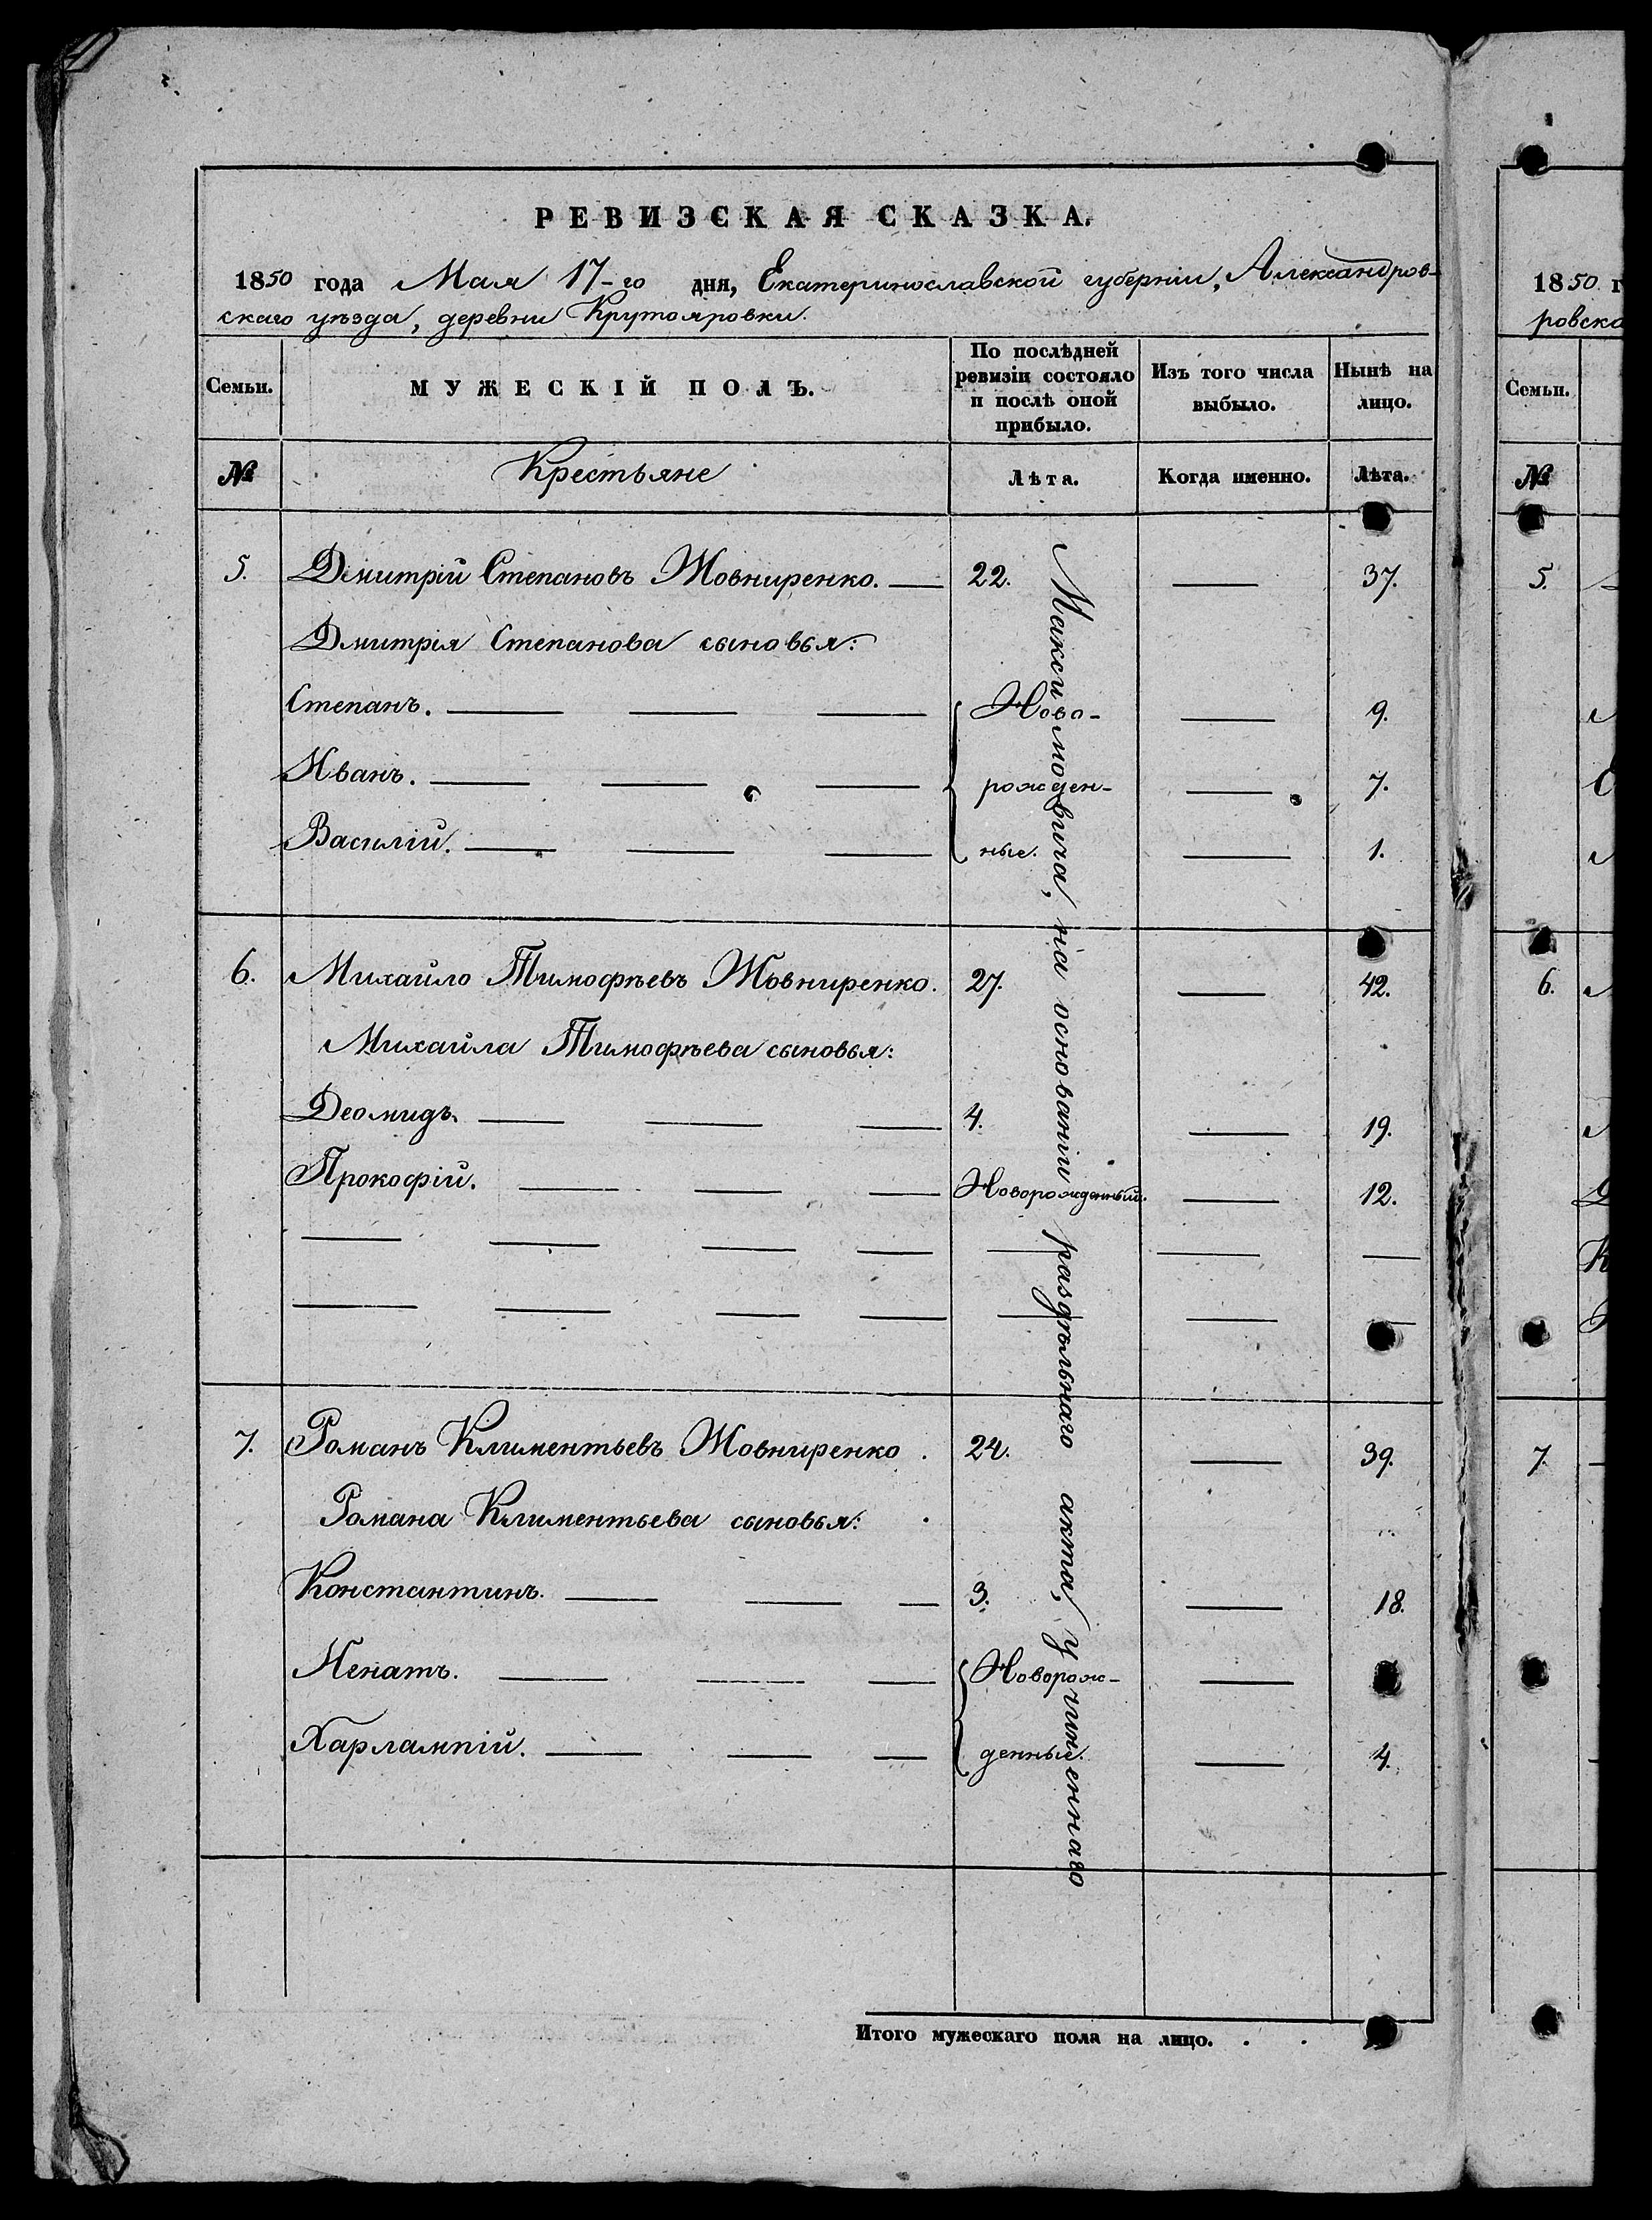 РЕВИЗСКАЯ СКАЗКА.
1850 года Мая 17-го дня, Екатеринославской губерніи, Александров-
скаго уѣзда, деревни Крутояровки.
Семьи.
МУЖЕСКІЙ ПОЛЪ.
По послѣдней
ревизіи состояло
и послѣ оной
прибыло.
Изъ того числа
выбыло.
Нынѣ на
лицо.
№ Крестьяне Лѣта. Когда именно. Лѣта.
5. Дмитрій Степановъ Жовниренко. — 22. — 37.
Дмитрія Степанова сыновья:
Степанъ. — — — Ново- — 9.
Иванъ. — — — рожден- — 7.
Василій. — — — ные. — 1.
6. Михайло Тимофѣевъ Жовниренко. 27. — 42.
Михайла Тимофѣева сыновья:
Деомидъ. — — — 4. — 19.
Прокофій. — — — Новорожденный. — 12.
— — — — — — —
— — — — — — —
7. Романъ Климентьевъ Жовниренко. 24. — 39.
Романа Климентьева сыновья:
Константинъ. — — — 3. — 18.
— — — Новорож- —
Харлампій. — — — денные. — 4.
Максимовича, на основаніи раздѣльнаго акта, учиненнаго
Итого мужескаго пола на лицо. . .
1850 г
ровска
Семьи.
№
5.
6.
7.